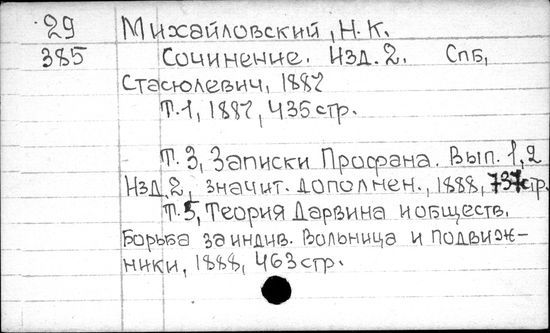 29 Михайловский, Н.К.
385 Сочинение. Изд.2. Спб,
Стасюлевич, 1887
Т.1, 1887, 435 стр.
Т. 3, Записки Профана. Вып. 1,2
Изд.2, значит. дополнен., 1888, 737 стр.
Т.5, Теория Дарвина и обществ.
Борьба за индив. Вольница и подвиж-
ники, 1888, 463 стр.